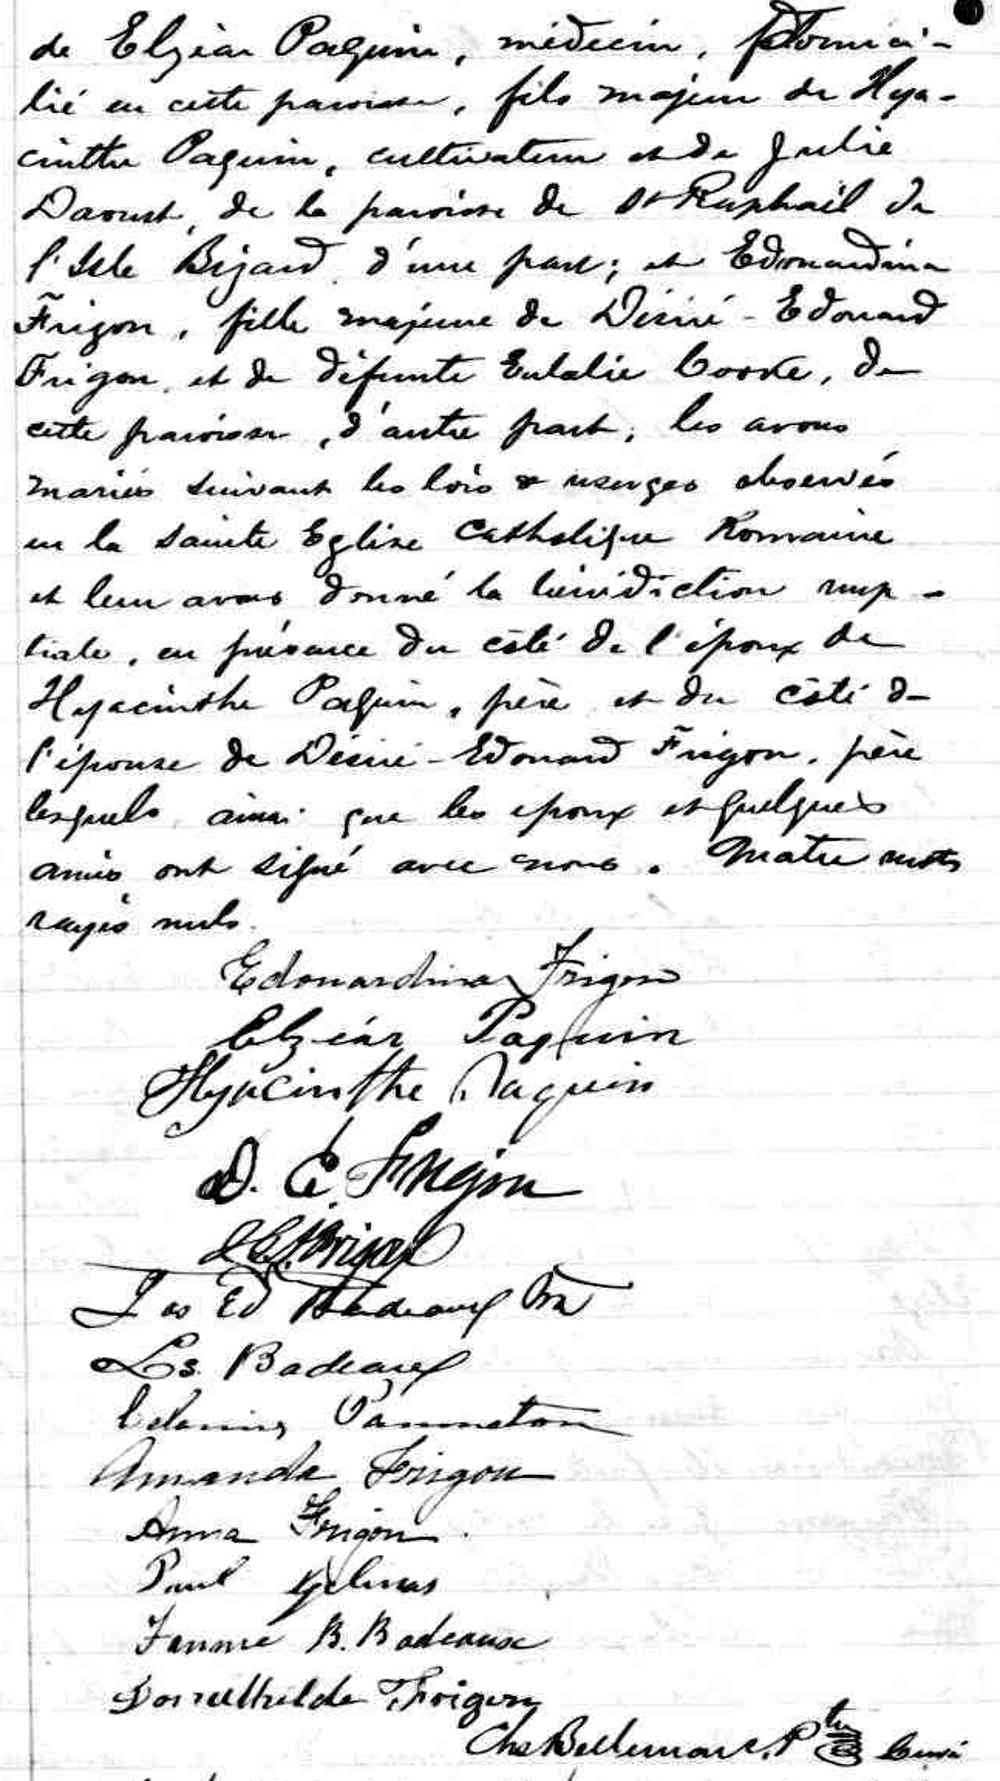 de Elzéar Paquin, médecin, domici-
lié en cette paroisse, fils majeur de Hya-
cinthe Paquin, cultivateur et de Julie
Daoust, de la paroisse de St Raphaël de
l'Isle Bizard, d'une part; et Edouardina
Frigon, fille majeure de Désiré-Edouard
Frigon, et de défunte Eulalie Cooke, de
cette paroisse, d'autre part, les avons
mariés suivant les lois & usages observés
en la Sainte Eglise Catholique Romaine
et leur avons donné la bénédiction nup-
tiale, en présence du côté de l'époux de
Hyacinthe Paquin, père et du côté de
l'épouse de Désiré-Edouard Frigon, père
lesquels ainsi que les époux et quelques
amis ont signé avec nous. mots
rayés nuls.
Edouardina Frigon
Elzéar Paquin
Hyacinthe Paquin
D. E. Frigon
Frigon
Jos Ed Badeaux
Ls. Badeaux
Panneton
Amanda Frigon
Anna Frigon.
Paul Gelinas
Fannie B. Badeaux
Frigon
Chs Bellemare, Ptre Curé